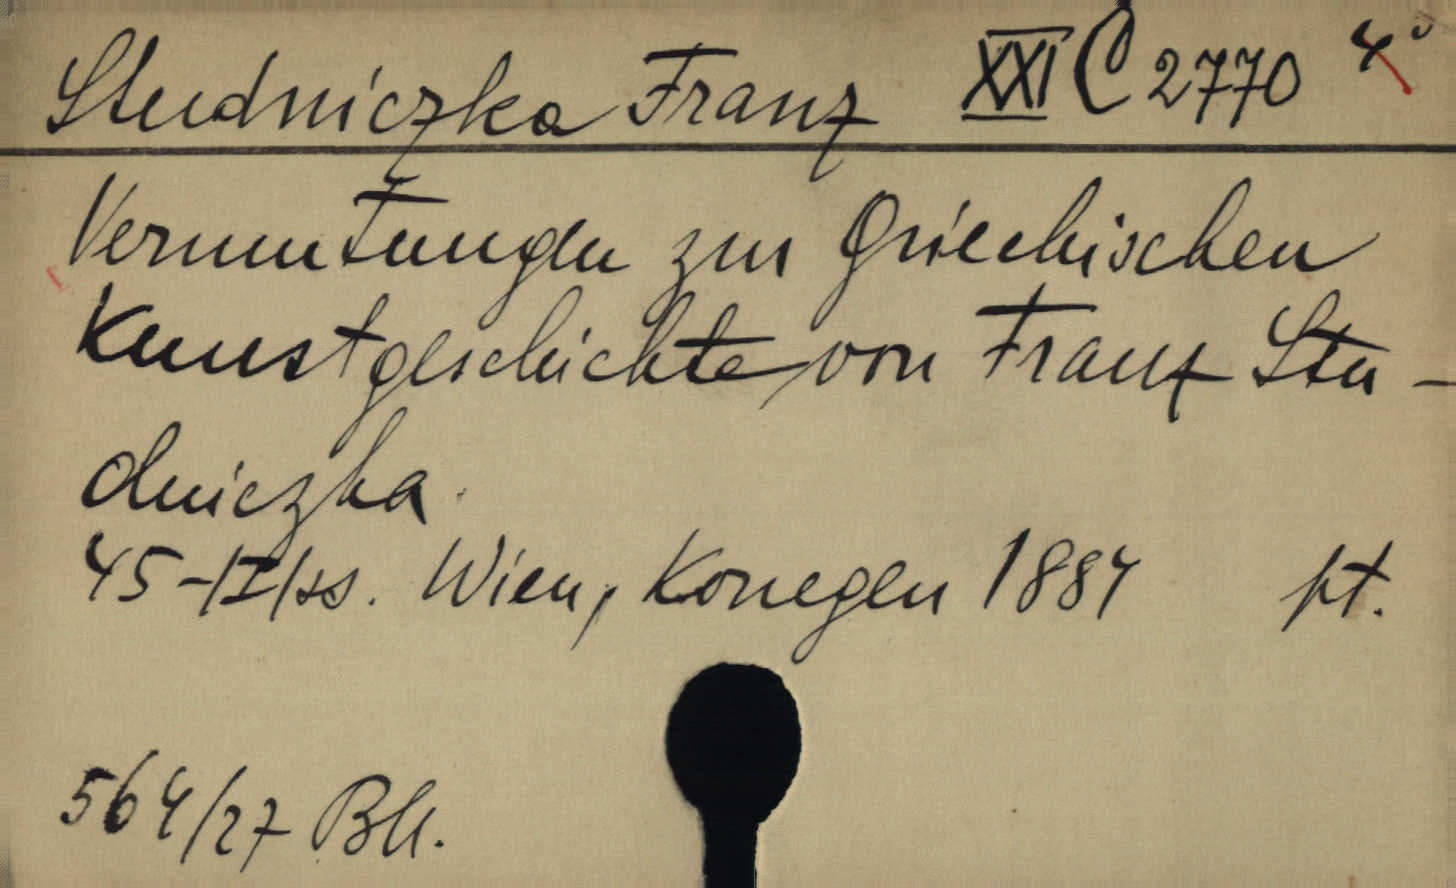 Studniczka Franz XXI C 2770 4°
Vermutungen zur Griechischen
Kunstgeschichte von Franz Stu-
dniczka
45-/I/ss. Wien, Konegen 1884 pt.
564/27 Bh.